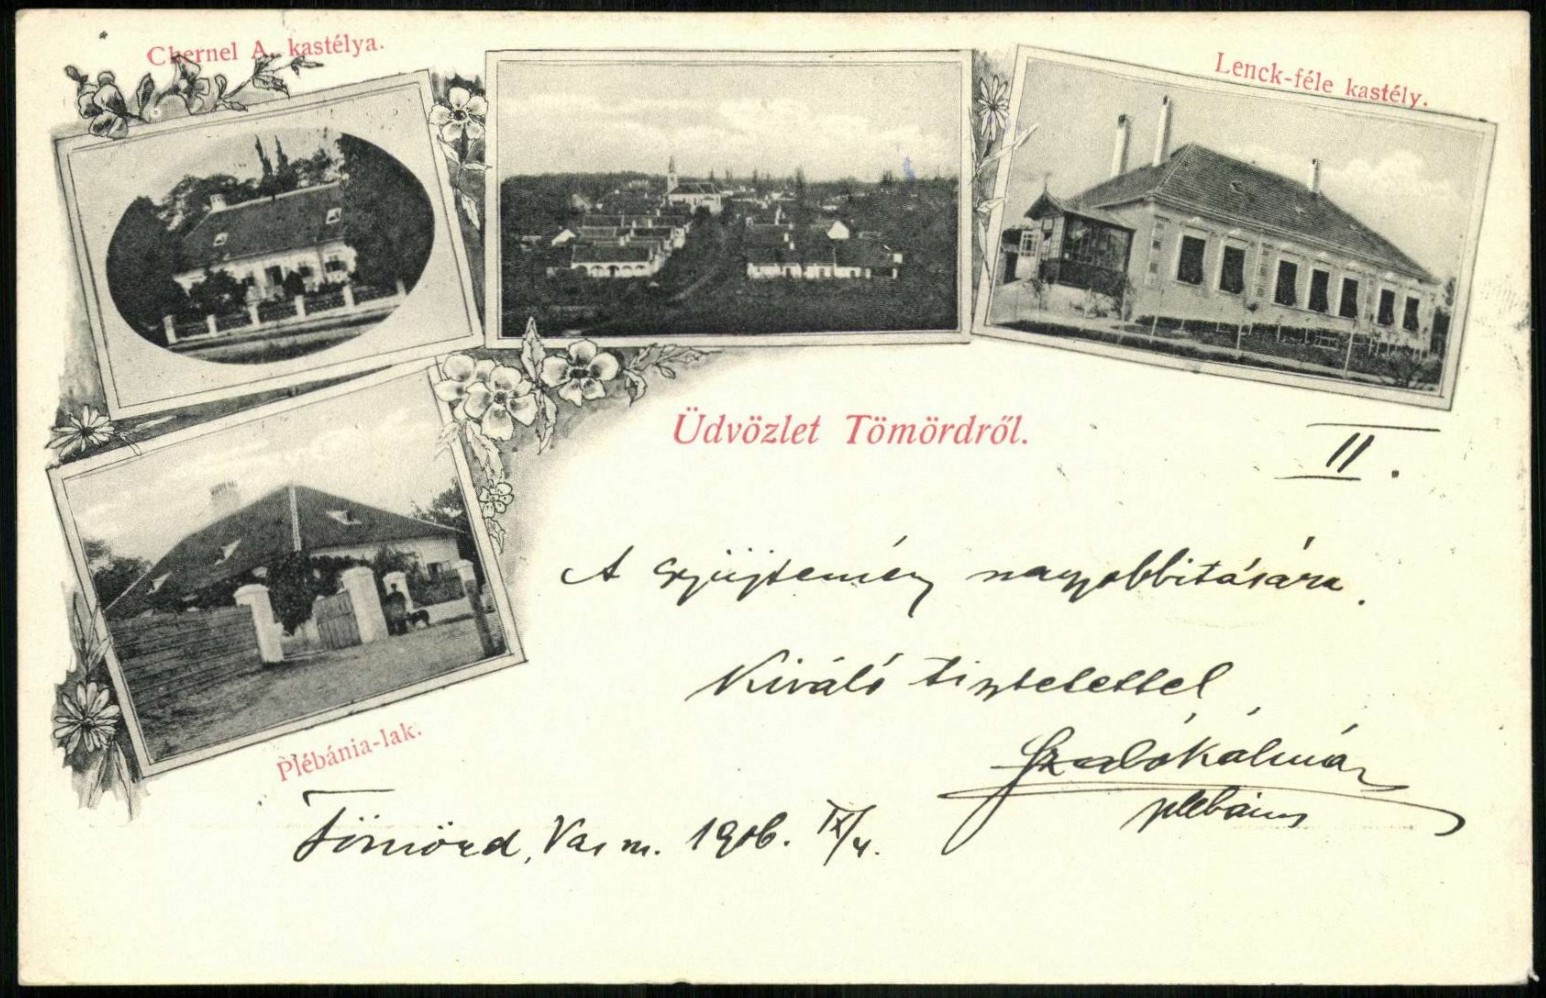 Chernel A. kastélya.
Lenck-féle kastély.
Üdvözlet Tömördről.
II.
A gyüjtemény nagyobbitására.
Kiváló tisztelettel
Kálmán
plébános
Plébánia-lak.
Tömörd, Vas m. 1906. IX/4.